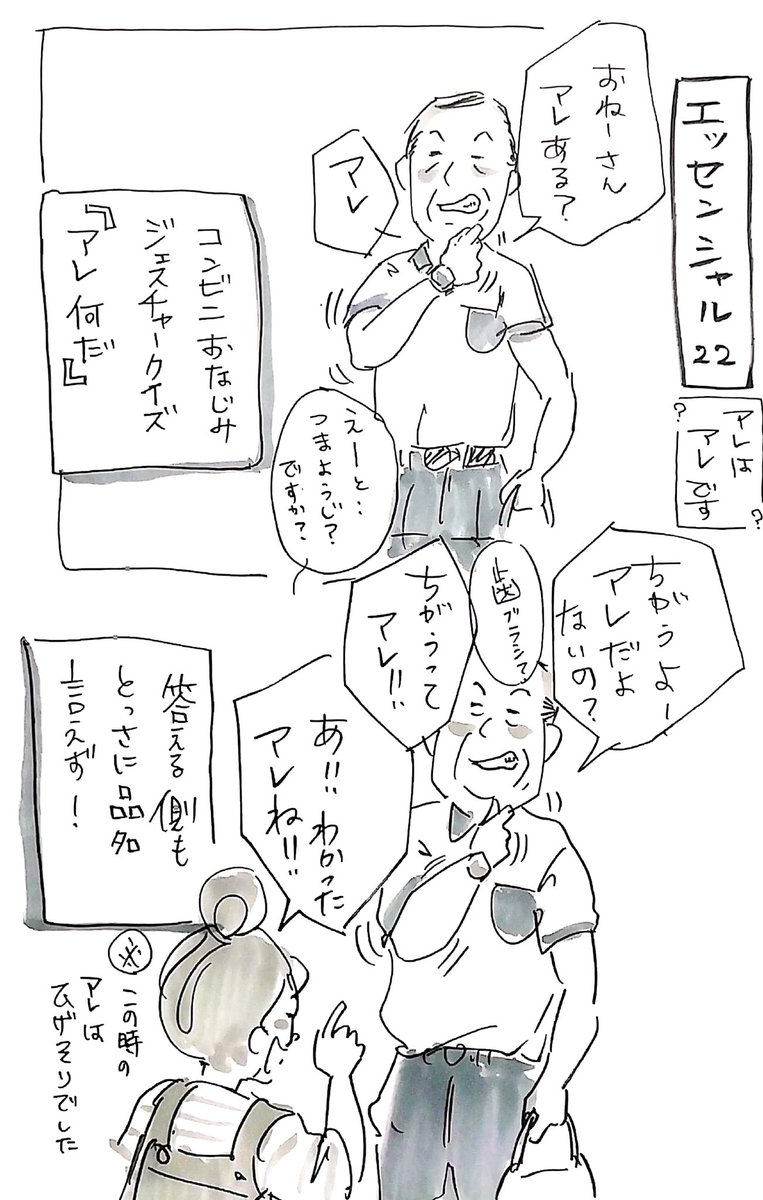 エッセンシャル22
アレは
アレです
?
?
おねーさん
アレある?
アレ
コンビニおなじみ
ジェスチャークイズ
『アレ何だ』
えーと・・
つまようじ?
ですか?
ちがうよー
アレだよ
ないの?
歯ブラシ?
ちがうって
アレ!!
あ!!わかった
アレね!!
答える側も
とっさに品名
言えず!
※この時の
アレは
ひげそりでした